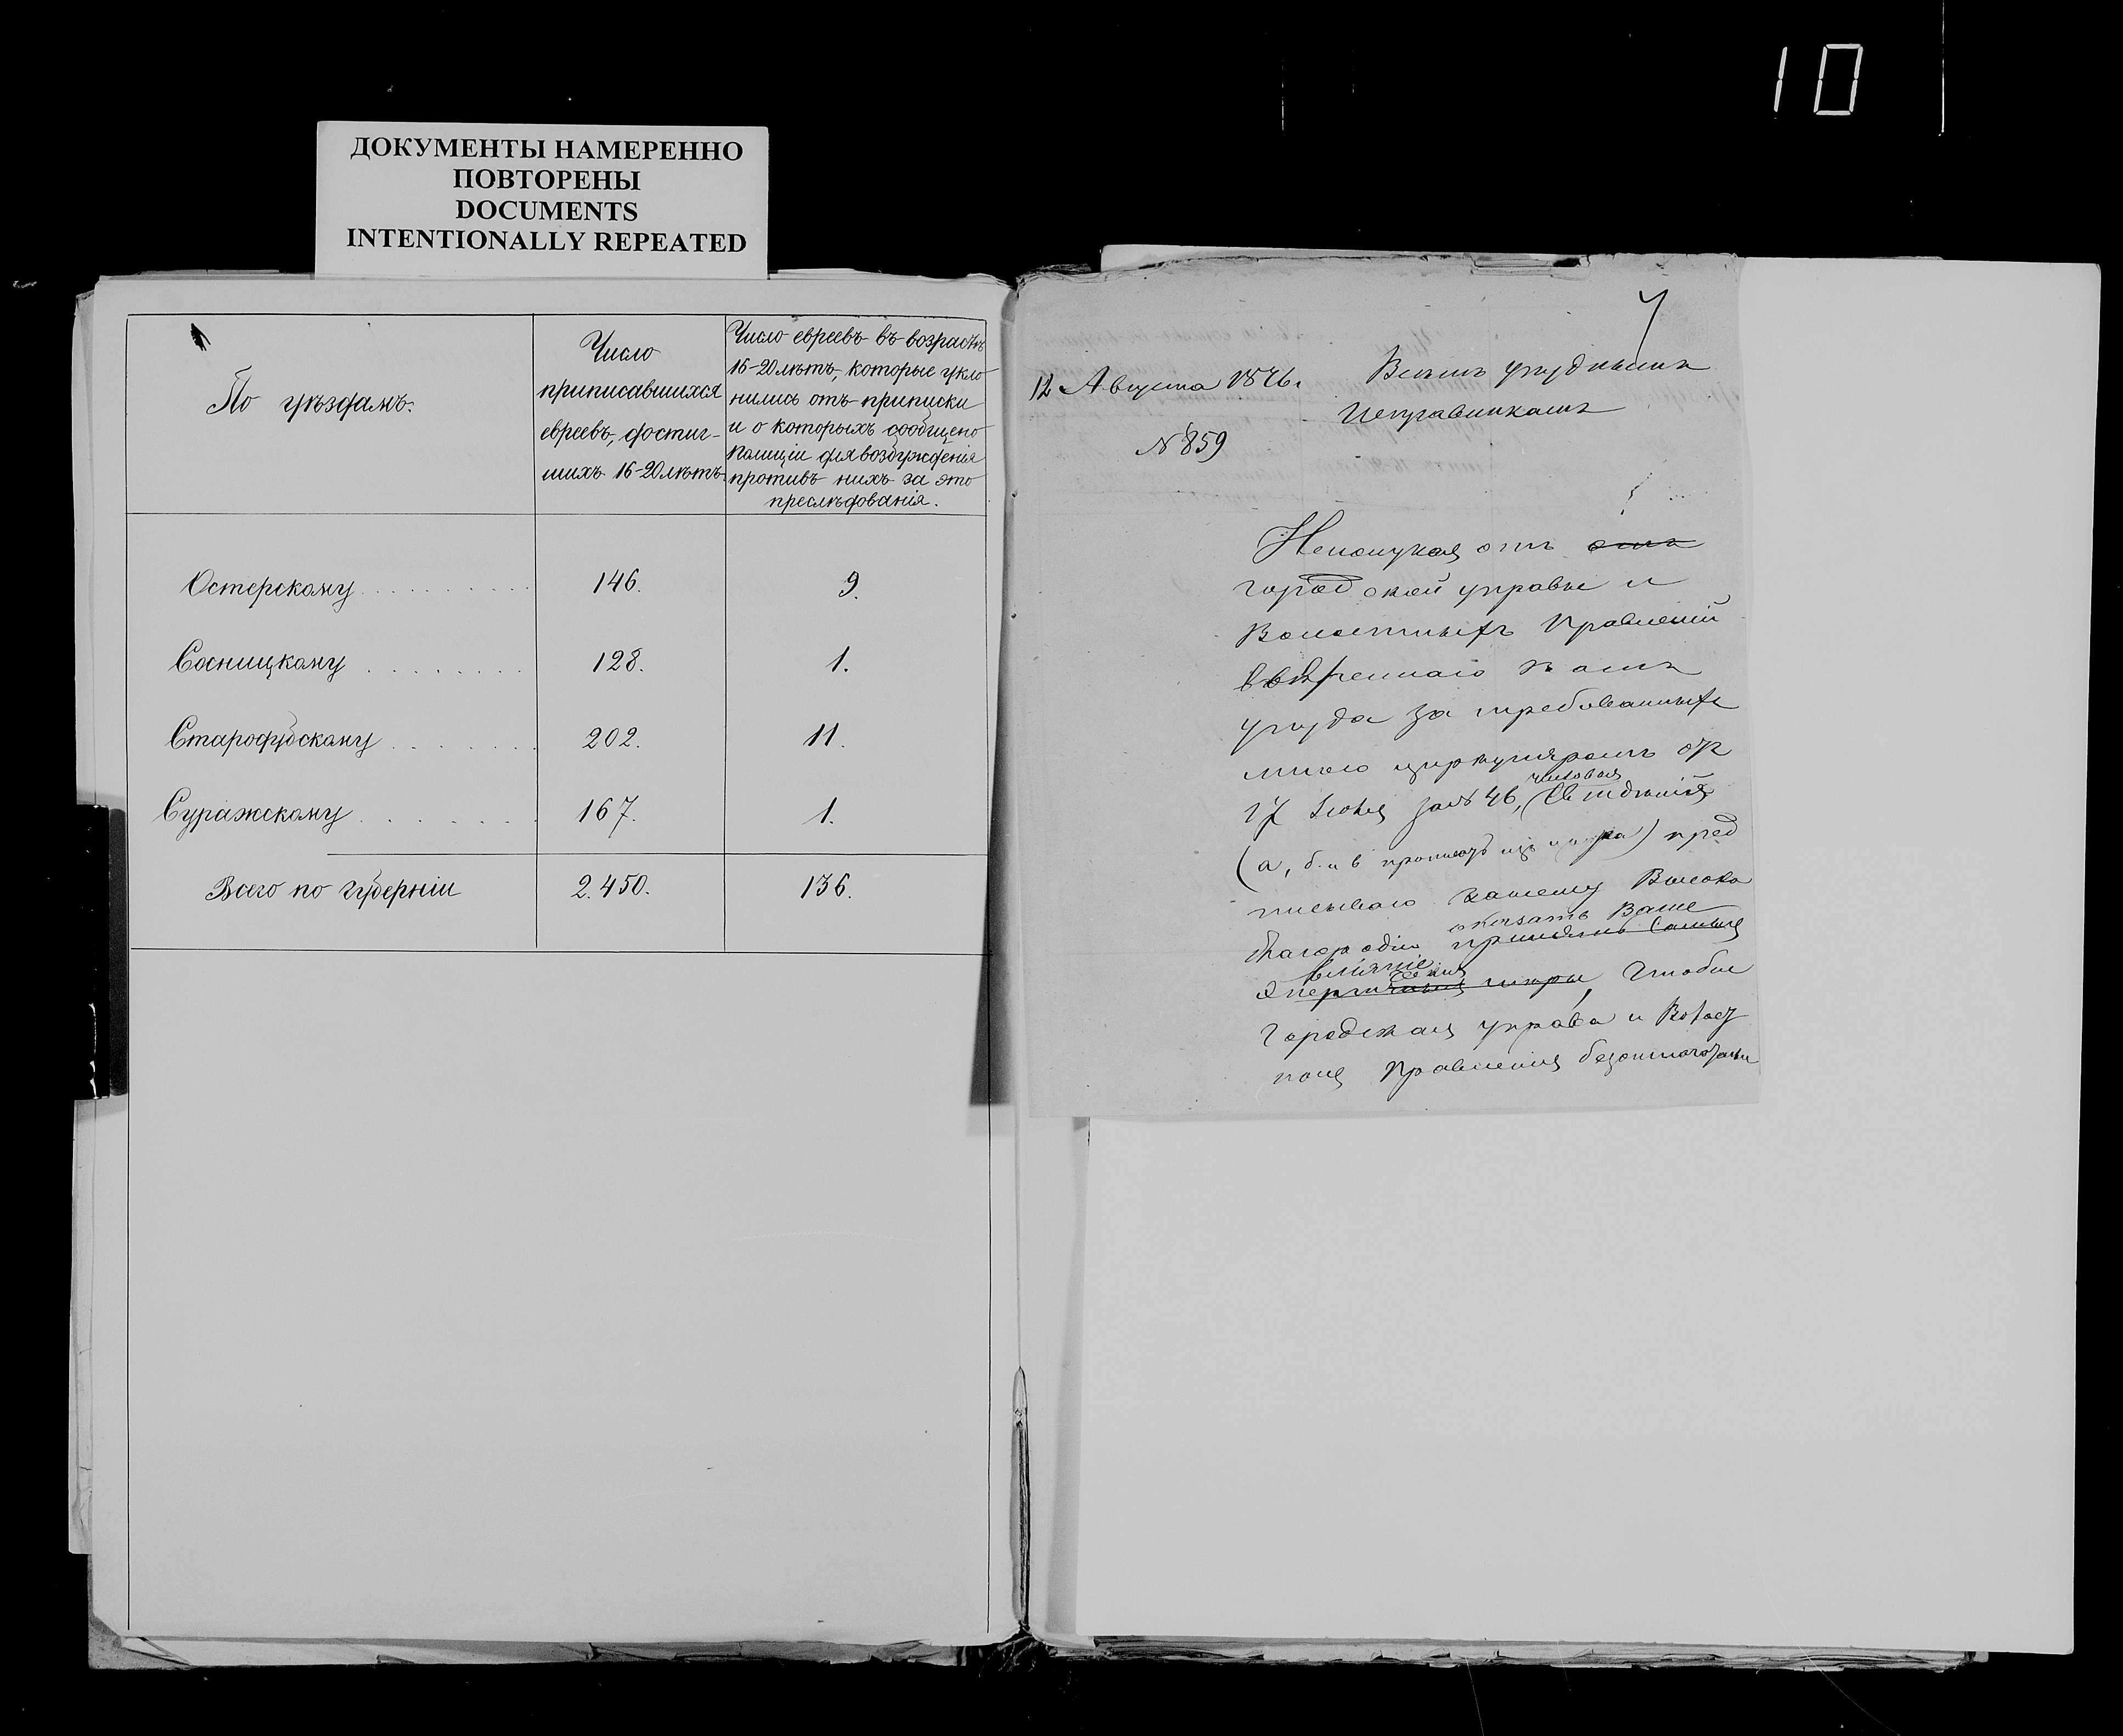 10
ДОКУМЕНТЫ НАМЕРЕННО
ПОВТОРЕНЫ
DOCUMENTS
INTENTIONALLY REPEATED
По уѣздамъ:
Число
приписавшихся
евреевъ, достиг-
шихъ 16-20 лѣтъ.
Число евреевъ въ возрастѣ
16-20 лѣтъ, которые укло-
нились отъ приписки
и о которыхъ сообщено
полиціи для возбужденія
противъ нихъ за это
преслѣдованія.
Остерскому . . . . . . . . . . 146. 9.
Сосницкому . . . . . . . . 128. 1.
Стародубскому . . . . . . 202. 11.
Суражскому . . . . . . . 167. 1.
Всего по губерніи 2.450. 136.
12 Августа 1876.
№ 859
Всѣмъ уѣзднымъ
Исправникамъ
Неполучая отъ
городской управы и
Волостныхъ Правленій
ввѣреннаго вамъ
уѣзда за требованныхъ
мною циркуляромъ отъ
17 Іюня за № 46, свѣдѣній
(а, б и в) пред
писываю вашему Высоко
благородію оказать Ваше
вліяніе, чтобы
Городская управа и Волост
ныя Правленія